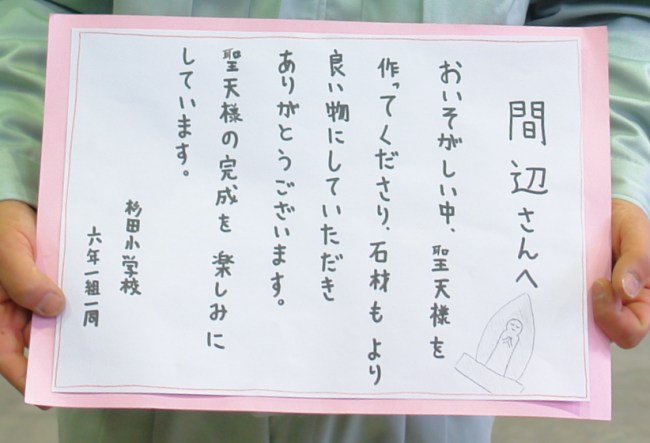 間辺さんへ
おいそがしい中、聖天様を
作ってくださり、石材もより
良い物にしていただき
ありがとうございます。
聖天様の完成を楽しみに
しています。
杉田小学校
六年一組一同